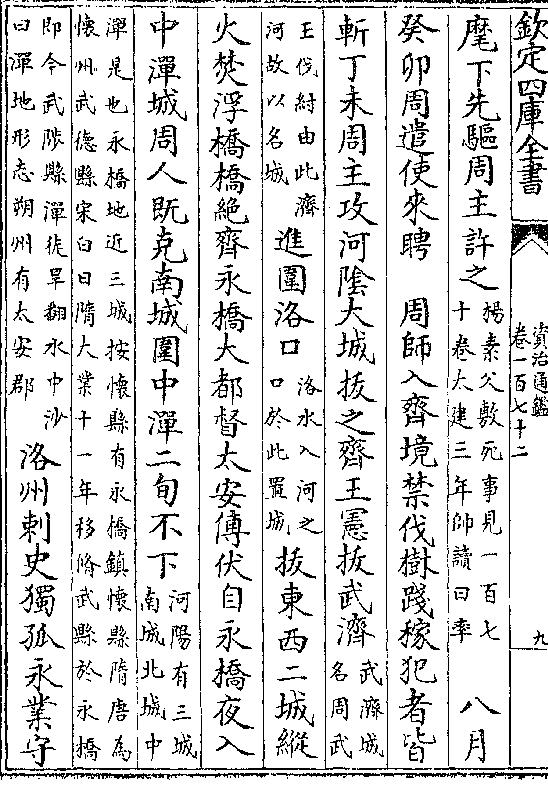 欽定四庫全書
資治通鑑
卷一百七十二
九
麾下先驅周主許之
楊素父敷死事見一百七
十卷太建三年帥讀曰率
八月
癸卯周遣使來聘　周師入齊境禁伐樹踐稼犯者皆
斬丁未周主攻河陰大城拔之齊王憲拔武濟
武濟城
名周武
王伐紂由此濟
河故以名城
進圍洛口
洛水入河之
口於此置城
拔東西二城縱
火焚浮橋橋絶齊永橋大都督太安傅伏自永橋夜入
中潬城周人既克南城圍中潬二旬不下
河陽有三城
南城北城中
潬是也永橋地近三城按懷縣有永橋鎮懷縣隋唐為
懷州武德縣宋白曰隋大業十一年移脩武縣於永橋
即今武陟縣潬徒旱翻水中沙
曰潬地形志朔州有太安郡
洛州刺史獨孤永業守